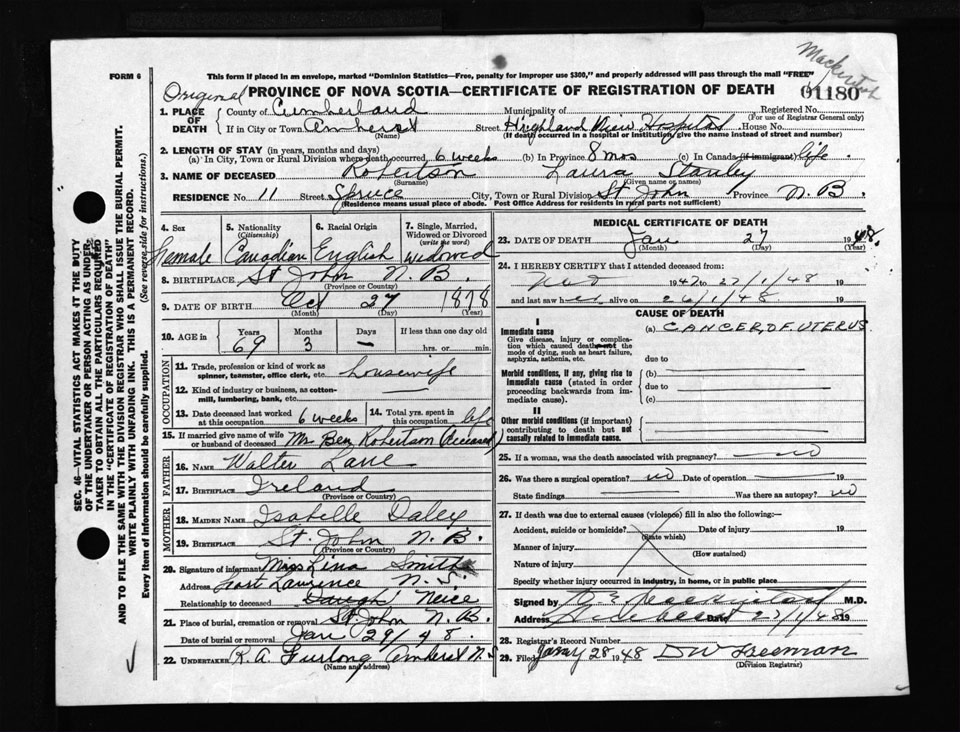 Mackintosh
FORM 6
This form if placed in an envelope, marked "Dominion Statistics—Free, penalty for improper use $300," and properly addressed will pass through the mail "FREE"
Original PROVINCE OF NOVA SCOTIA—CERTIFICATE OF REGISTRATION OF DEATH 01180
1. PLACE OF DEATH County of Cumberland Municipality of Registered No.
(For use of Registrar General only)
If in City or Town Amherst Street Highland View Hospital House No.
(Name) (If death occurred in a hospital or institution, give the name instead of street and number)
2. LENGTH OF STAY (in years, months and days)
(a) In City, Town or Rural Division where death occurred, 6 weeks (b) In Province 8 mos (c) In Canada (if immigrant) life.
3. NAME OF DECEASED Robertson Laura Stanley
(Surname) (Given name or names)
RESIDENCE No. 11 Street Spruce City, Town or Rural Division St John Province N.B.
(Residence means usual place of abode. Post Office Address for residents in rural parts not sufficient)
4. Sex 5. Nationality (Citizenship) 6. Racial Origin 7. Single, Married, Widowed or Divorced (write the word)
Female Canadian English Widowed
8. BIRTHPLACE St John N.B.
(Province or Country)
9. DATE OF BIRTH Oct 27 1878
(Month) (Day) (Year)
10. AGE Years Months Days If less than one day old
69 3 — hrs. or min.
OCCUPATION
11. Trade, profession or kind of work as spinner, teamster, office clerk, etc. housewife
12. Kind of industry or business, as cotton-mill, lumbering, bank, etc.
13. Date deceased last worked at this occupation 6 weeks 14. Total yrs. spent in this occupation life
15. If married give name of wife or husband of deceased Mr Ben Robertson (deceased)
FATHER
16. NAME Walter Lane
17. BIRTHPLACE Ireland
(Province or Country)
MOTHER
18. MAIDEN NAME Isabelle Daley
19. BIRTHPLACE St. John N.B.
(Province or Country)
20. Signature of informant Miss Lina Smith
Address Fort Lawrence N.S.
Relationship to deceased Daugh Neice
21. Place of burial, cremation or removal St. John N.B.
Date of burial or removal Jan 29/48.
22. UNDERTAKER R.A. Furlong Amherst N.S.
(Name and address)
MEDICAL CERTIFICATE OF DEATH
23. DATE OF DEATH Jan 27 1948.
(Month) (Day) (Year)
24. I HEREBY CERTIFY that I attended deceased from:
1947 to 27/1/48
and last saw her alive on 26/1/48
CAUSE OF DEATH
I
Immediate cause (a) CANCER OF UTERUS
Give disease, injury or complication which caused death not the mode of dying, such as heart failure, asphyxia, asthenia, etc.
due to
Morbid conditions, if any, giving rise to immediate cause (stated in order proceeding backwards from immediate cause).
(b)
due to
(c)
II
Other morbid conditions (if important) contributing to death but not causally related to immediate cause.
25. If a woman, was the death associated with pregnancy? no
26. Was there a surgical operation? no Date of operation 19
State findings Was there an autopsy? no
27. If death was due to external causes (violence) fill in also the following:—
Accident, suicide or homicide? Date of injury 19
(State which)
Manner of injury
(How sustained)
Nature of injury
Specify whether injury occurred in industry, in home, or in public place
Signed by Mackintosh M.D.
Address Date /1/48 19
28. Registrar's Record Number
29. Filed Jany 28 1948 DW Freeman
(Division Registrar)
SEC. 46—VITAL STATISTICS ACT MAKES IT THE DUTY
OF THE UNDERTAKER OR PERSON ACTING AS UNDER-
TAKER TO OBTAIN ALL THE PARTICULARS REQUIRED
IN THE "CERTIFICATE OF REGISTRATION OF DEATH"
AND TO FILE THE SAME WITH THE DIVISION REGISTRAR WHO SHALL ISSUE THE BURIAL PERMIT.
WRITE PLAINLY WITH UNFADING INK. THIS IS A PERMANENT RECORD.
Every item of Information should be carefully supplied. (See reverse side for instructions.)